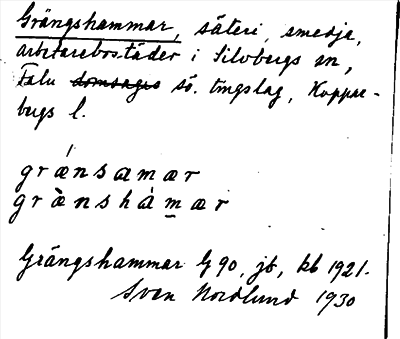 Grängshammar, säteri, smedja,
arbetarebostäder i Silvbergs sn,
Falu domsagas sö. tingslag, Koppar-
bergs l.
grǽnsamær
græ̀nshám̲ær
Grängshammar G 90, jb, kb 1921.
Sven Nordlund 1930